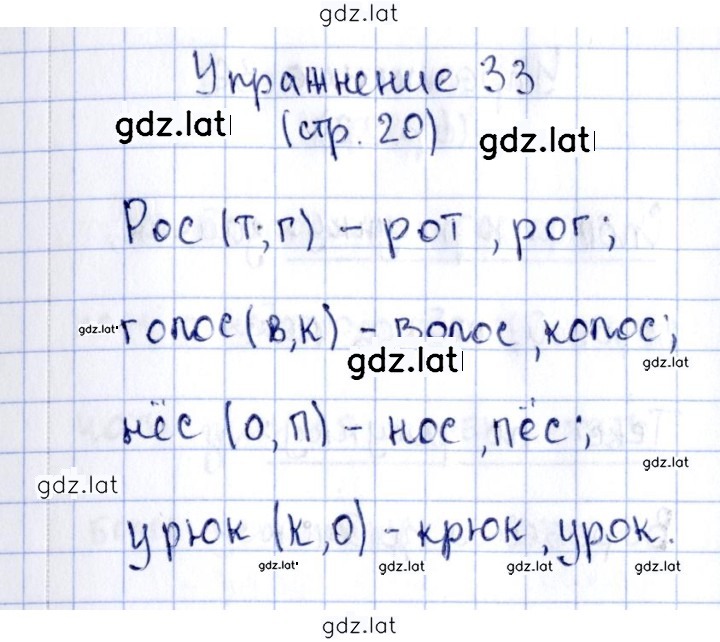 gdz.lat
Упражнение 33
gdz.lat (стр. 20) gdz.lat
Рос (т, г) – рот, рог;
gdz.lat голос (в, к) – волос, колос;
gdz.lat gdz.lat
нёс (о, п) – нос, пёс;
gdz.lat
gdz.lat
урюк (к, о) – крюк, урок.
gdz.lat gdz.lat gdz.lat gdz.lat
gdz.lat